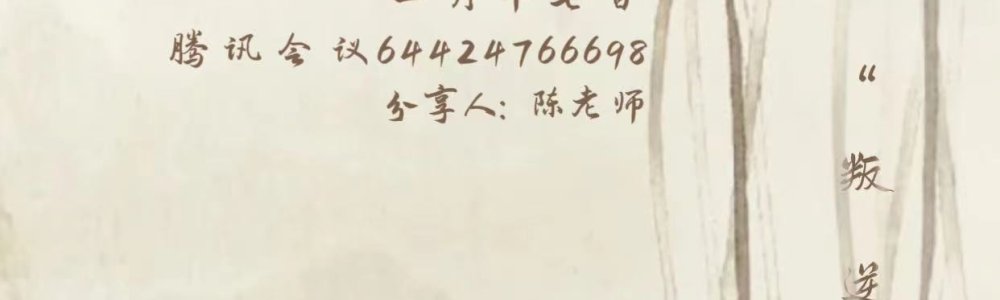 腾讯会议64424766698
分享人：陈老师
“叛逆